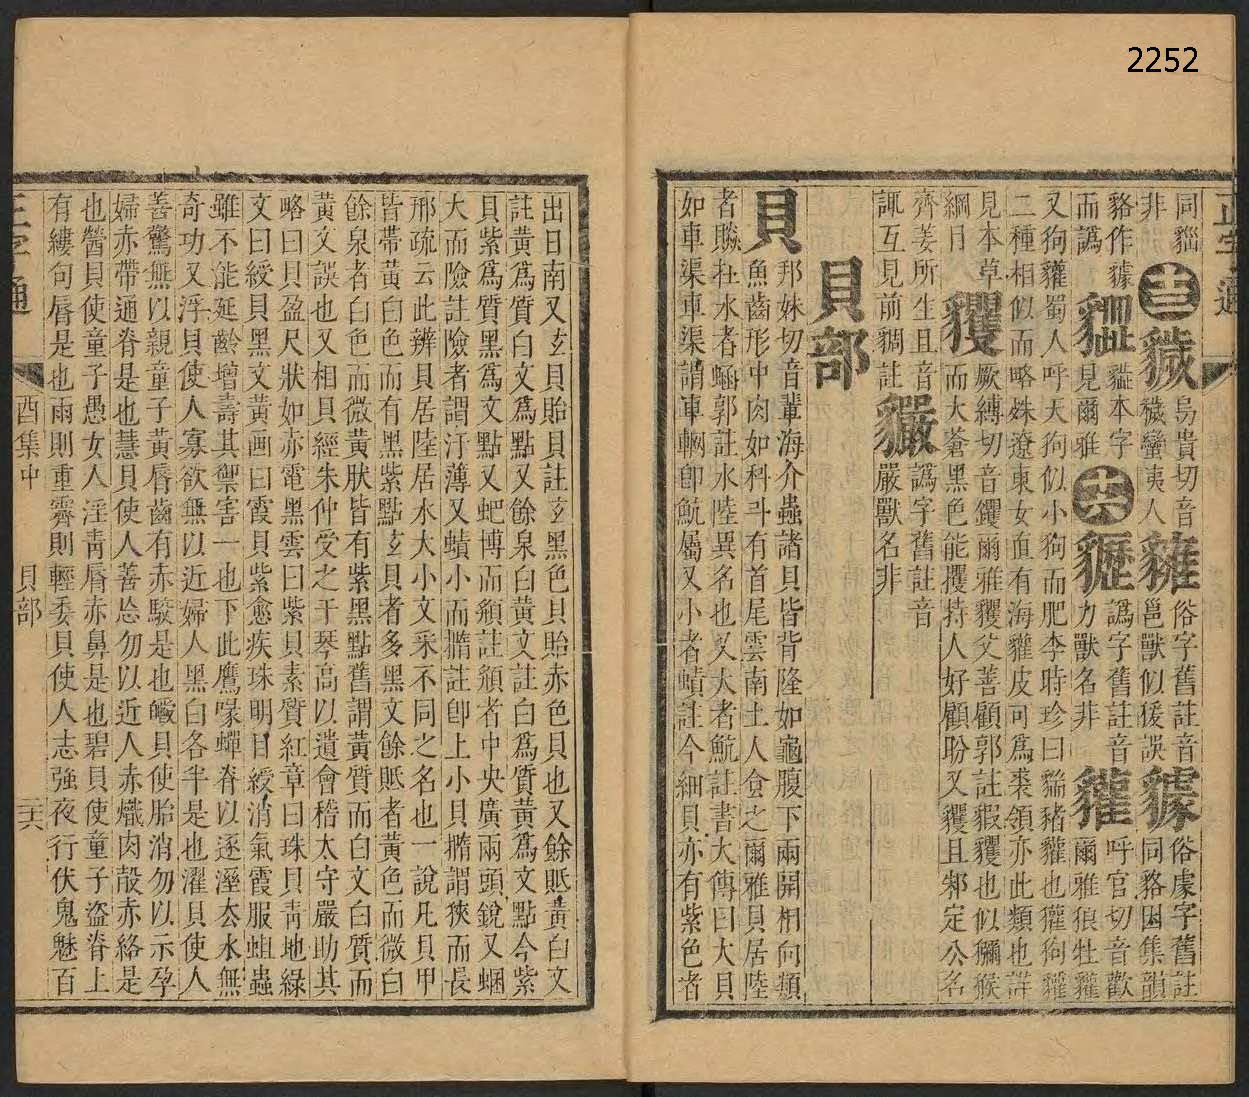 2252
正字通
同貓 十三 獩 烏貴切音穢蠻夷人 俗字舊註音邕獸似猨誤 俗䖍字舊註同貉因集韻
貉作 而譌 見爾雅 貓本字 十六 譌字舊註音力獸名非 貛 呼官切音歡爾雅狼牡貛
又狗貛蜀人呼天狗似小狗而肥李時珍曰貒豬貛也獾狗貛
二種相似而略殊遼東女直有海貛皮可爲裘領亦此類也詳
見本草綱目 貜 厥縛切音钁爾雅貜父善顧郭註貑貜也似獼猴
而大蒼黑色能攫持人好顧盼又貜且邾定公名
齊姜所生且音諏互見前貑註 玁 譌字舊註音嚴獸名非
貝部
貝 邦妹切音輩海介蟲諸貝皆背隆如龜腹下兩開相向類
魚齒形中肉如科斗有首尾雲南土人食之爾雅貝居陸
者贆在水者蜬郭註水陸異名也又大者魧註書大傳曰大貝
如車渠車渠謂車輞卽魧屬又小者鰿註今細貝亦有紫色者
出日南又玄貝貽貝註玄黑色貝貽赤色貝也又餘貾黃白文
註黃爲質白文爲點又餘泉白黃文註白爲質黃爲文點今紫
貝紫爲質黑爲文點又蚆博而頯註頯者中央廣兩頭銳又蜠
大而險註險者謂汙薄又蟦小而橢註卽上小貝橢謂狹而長
邢疏云此辨貝居陸居水大小文采不同之名也一說凡貝甲
皆帶黃白色而有黑紫點玄貝者多黑文餘貾者黃色而微白
餘泉者白色而微黃肰皆有紫黑點舊謂黃質而白文白質而
黃文誤也又相貝經朱仲受之于琴高以遺會稽太守嚴助其
略曰貝盈尺狀如赤電黑雲曰紫貝素質紅章曰珠貝靑地綠
文曰綬貝黑文黃画曰霞貝紫愈疾珠明目綬消氣霞服蛆蟲
雖不能延齡增壽其禦害一也下此鷹喙蟬脊以逐溼去水無
奇功又浮貝使人寡欲無以近婦人黑白各半是也濯貝使人
善驚無以親童子黃唇齒有赤駮是也皭貝使胎消勿以示孕
婦赤帶通脊是也慧貝使人善忘勿以近人赤熾肉殼赤絡是
也醟貝使童子愚女人淫靑唇赤鼻是也碧貝使童子盜脊上
有縷句唇是也雨則重霽則輕委貝使人志強夜行伏鬼魅百
正字通 酉集中 貝部 二六